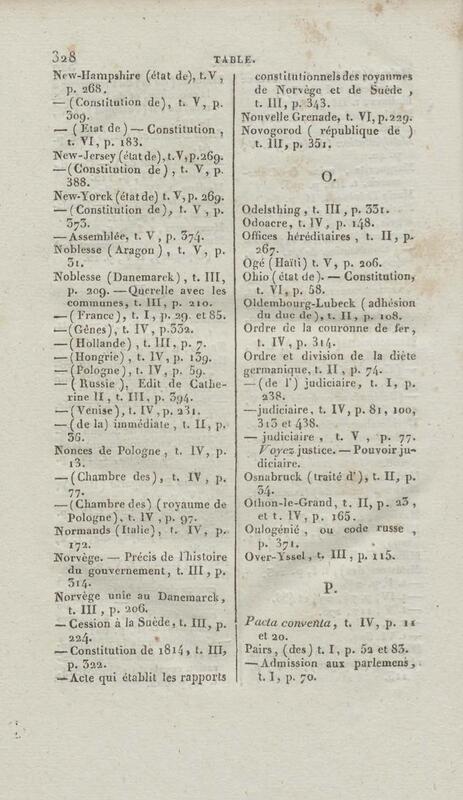 328
TABLE.
New-Hampshire (état de), t. V,
p. 268.
— (Constitution de), t. V, p.
309.
— (Etat de) — Constitution,
t. VI, p. 183.
New-Jersey (état de), t. V, p. 269.
— (Constitution de), t. V, p.
388.
New-Yorck (état de) t. V, p. 269.
— (Constitution de), t. V, p.
373.
— Assemblée, t. V, p. 374.
Noblesse (Aragon), t. V, p.
31.
Noblesse (Danemarck), t. III,
p. 209. — Querelle avec les
communes, t. III, p. 210.
— (France), t. I, p. 29. et 85.
— (Gênes), t. IV, p. 332.
— (Hollande), t. III, p. 7.
— (Hongrie), t. IV, p. 139.
— (Pologne), t. IV, p. 59.
— (Russie), Edit de Cathe-
rine II, t. III, p. 394.
— (Venise), t. IV, p. 231.
— (de la) immédiate, t. II, p.
36.
Nonces de Pologne, t. IV, p.
13.
— (Chambre des), t. IV, p.
77.
— (Chambre des) (royaume de
Pologne), t. IV, p. 97.
Normands (Italie), t. IV, p.
172.
Norvège. — Précis de l'histoire
du gouvernement, t. III, p.
314.
Norvège unie au Danemarck,
t. III, p. 206.
— Cession à la Suède, t. III, p.
224.
— Constitution de 1814, t. III,
p. 322.
— Acte qui établit les rapports
constitutionnels des royaumes
de Norvège et de Suède,
t. III, p. 343.
Nouvelle Grenade, t. VI, p. 229.
Novogorod (république de)
t. III, p. 351.
O.
Odelsthing, t. III, p. 331.
Odoacre, t. IV, p. 148.
Offices héréditaires, t. II, p.
267.
Ogé (Haïti) t. V, p. 206.
Ohio (état de). — Constitution,
t. VI, p. 58.
Oldembourg-Lubeck (adhésion
du duc de), t. II, p. 108.
Ordre de la couronne de fer,
t. IV, p. 314.
Ordre et division de la diète
germanique, t. II, p. 74.
— (de l') judiciaire, t. I, p.
238.
— judiciaire, t. IV, p. 81, 100,
313 et 438.
— judiciaire, t. V, p. 77.
Voyez justice. — Pouvoir ju-
diciaire.
Osnabruck (traité d'), t. II, p.
34.
Othon-le-Grand, t. II, p. 23,
et t. IV, p. 165.
Oulogénié, ou code russe,
p. 371.
Over-Yssel, t. III, p. 115.
P.
Pacta conventa, t. IV, p. 11
et 20.
Pairs, (des) t. I, p. 52 et 83.
— Admission aux parlemens,
t. I, p. 70.